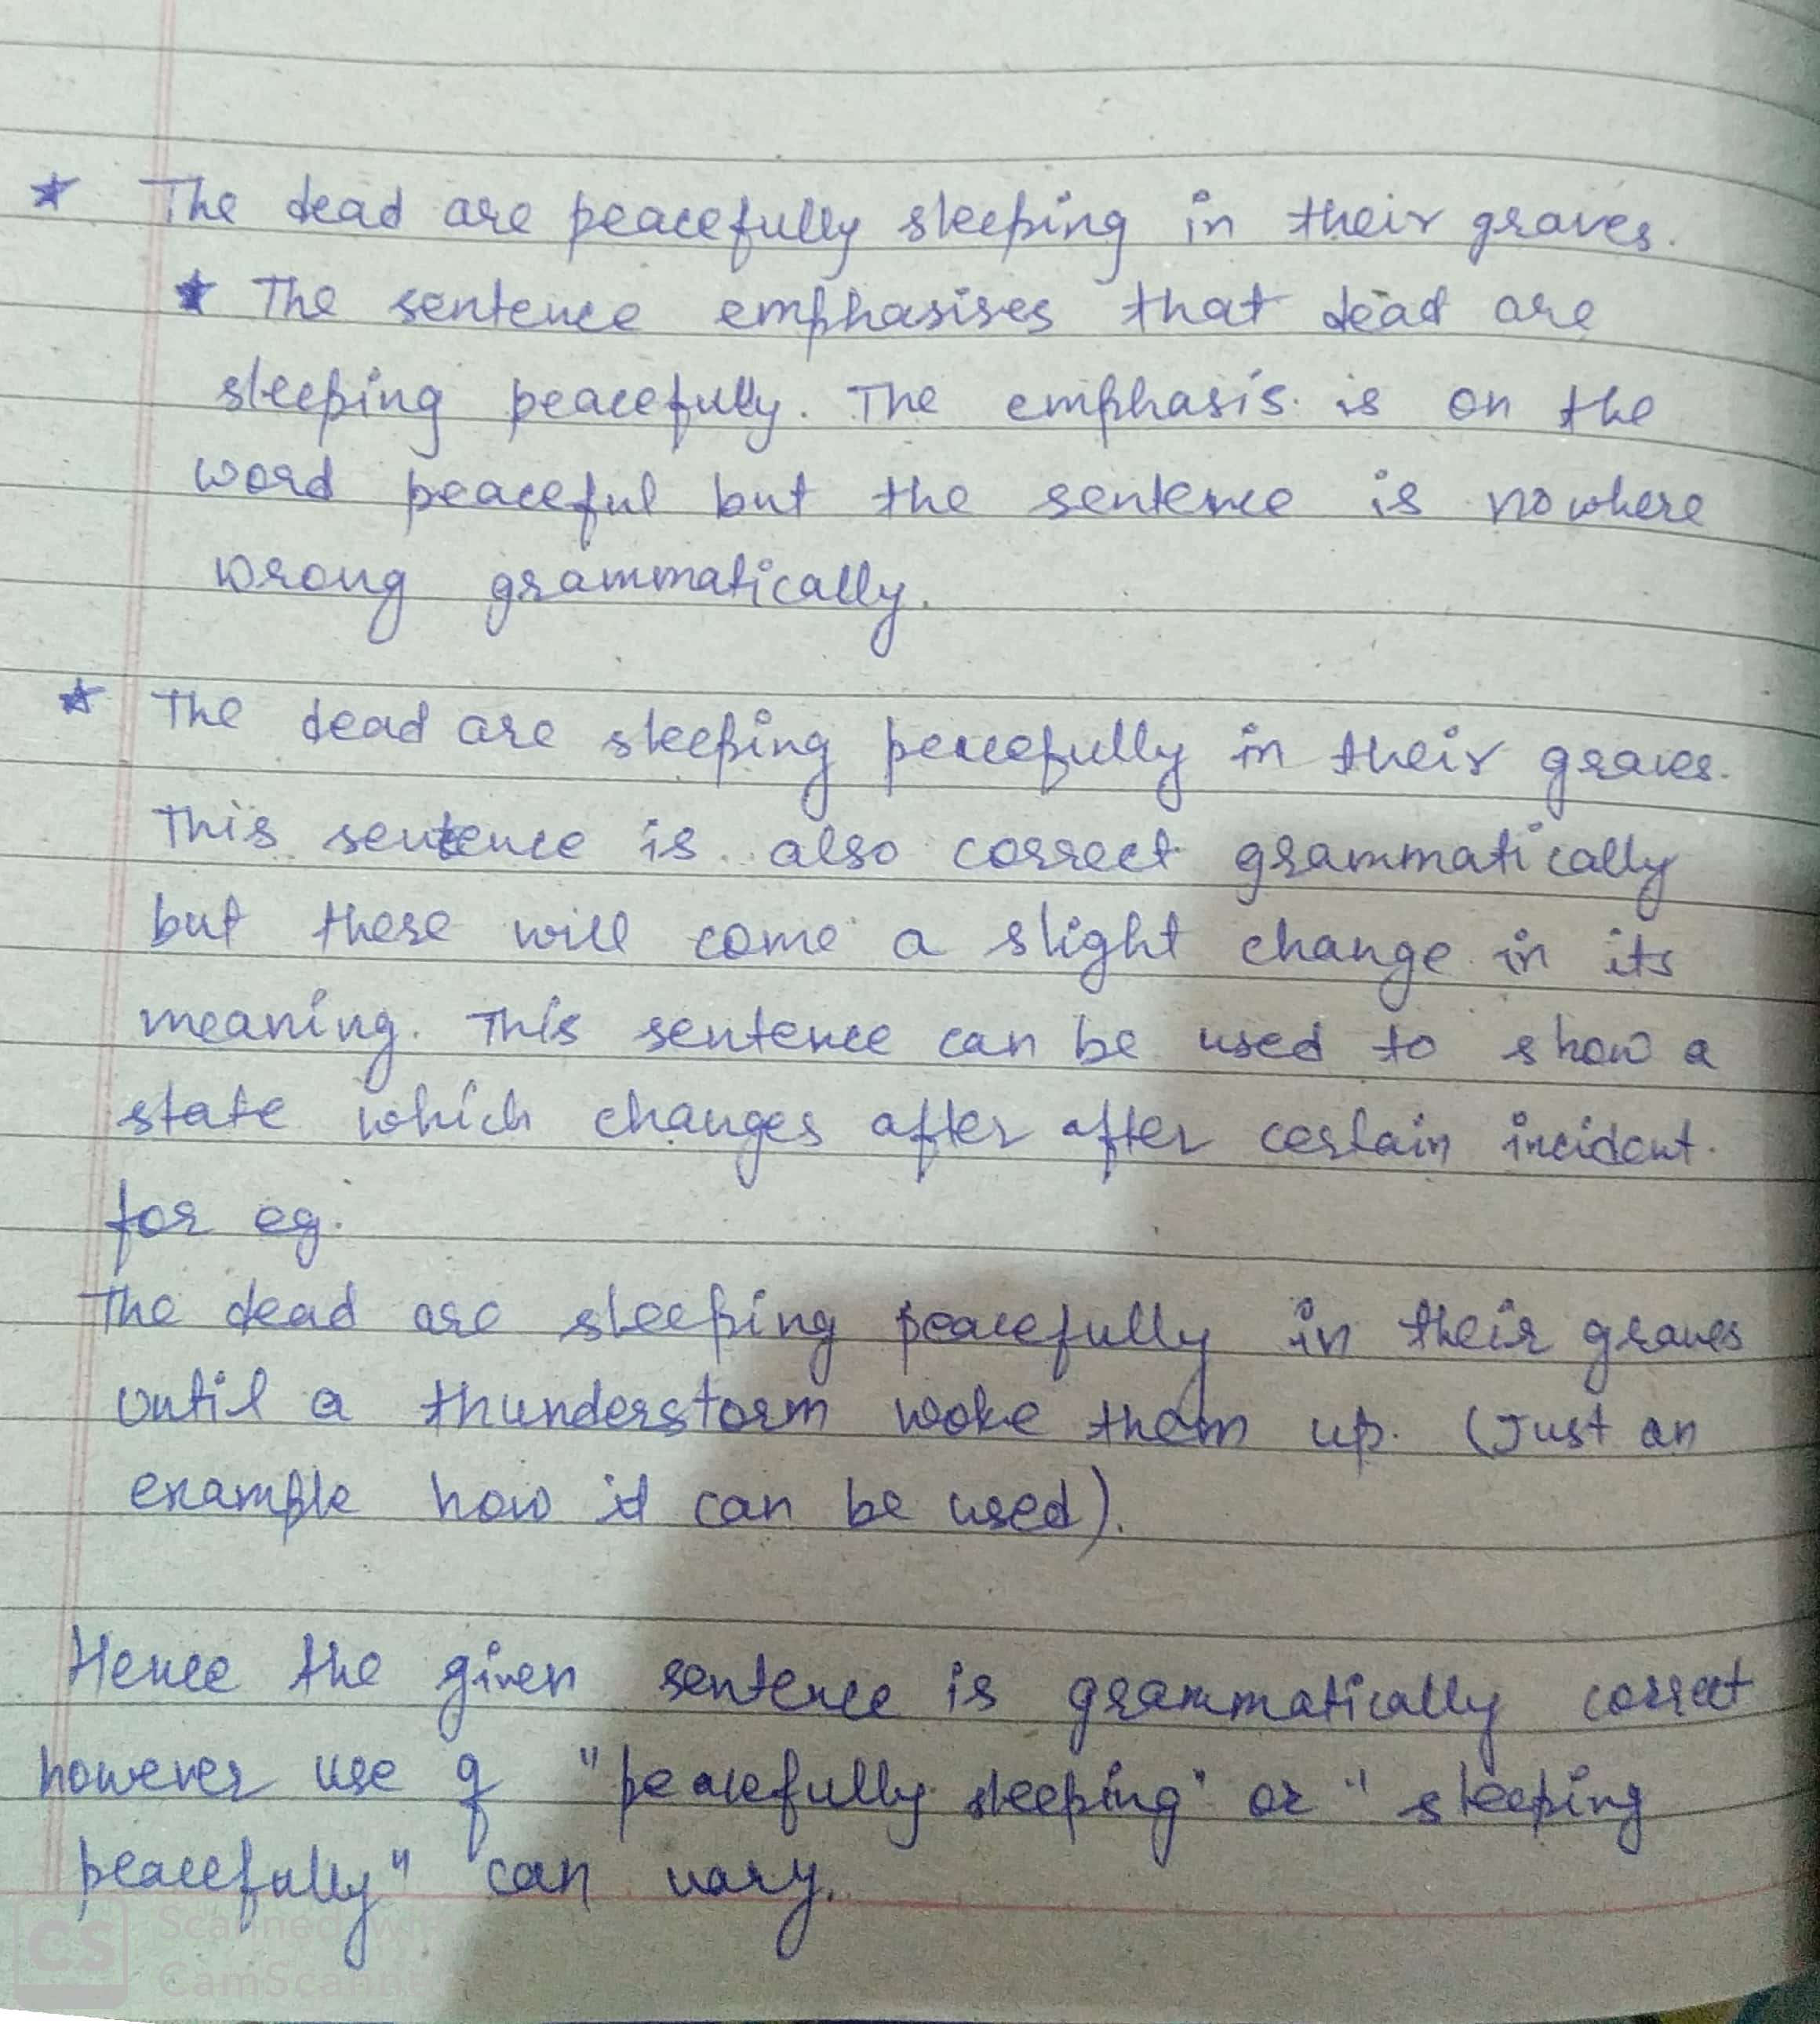 ★ The dead are peacefully sleeping in their graves.
★ The sentence emphasises that dead are
sleeping peacefully. The emphasis is on the
word peaceful but the sentence is nowhere
wrong grammatically.
★ The dead are sleeping peacefully in their graves.
This sentence is also correct grammatically
but there will come a slight change in its
meaning. This sentence can be used to show a
state which changes after after certain incident.
for eg.
The dead are sleeping peacefully in their graves
until a thunderstorm woke them up. (Just an
example how it can be used).
Hence the given sentence is grammatically correct
however use of "peacefully sleeping" or "sleeping
peacefully" can vary.
CS
Scanned with
CamScanner